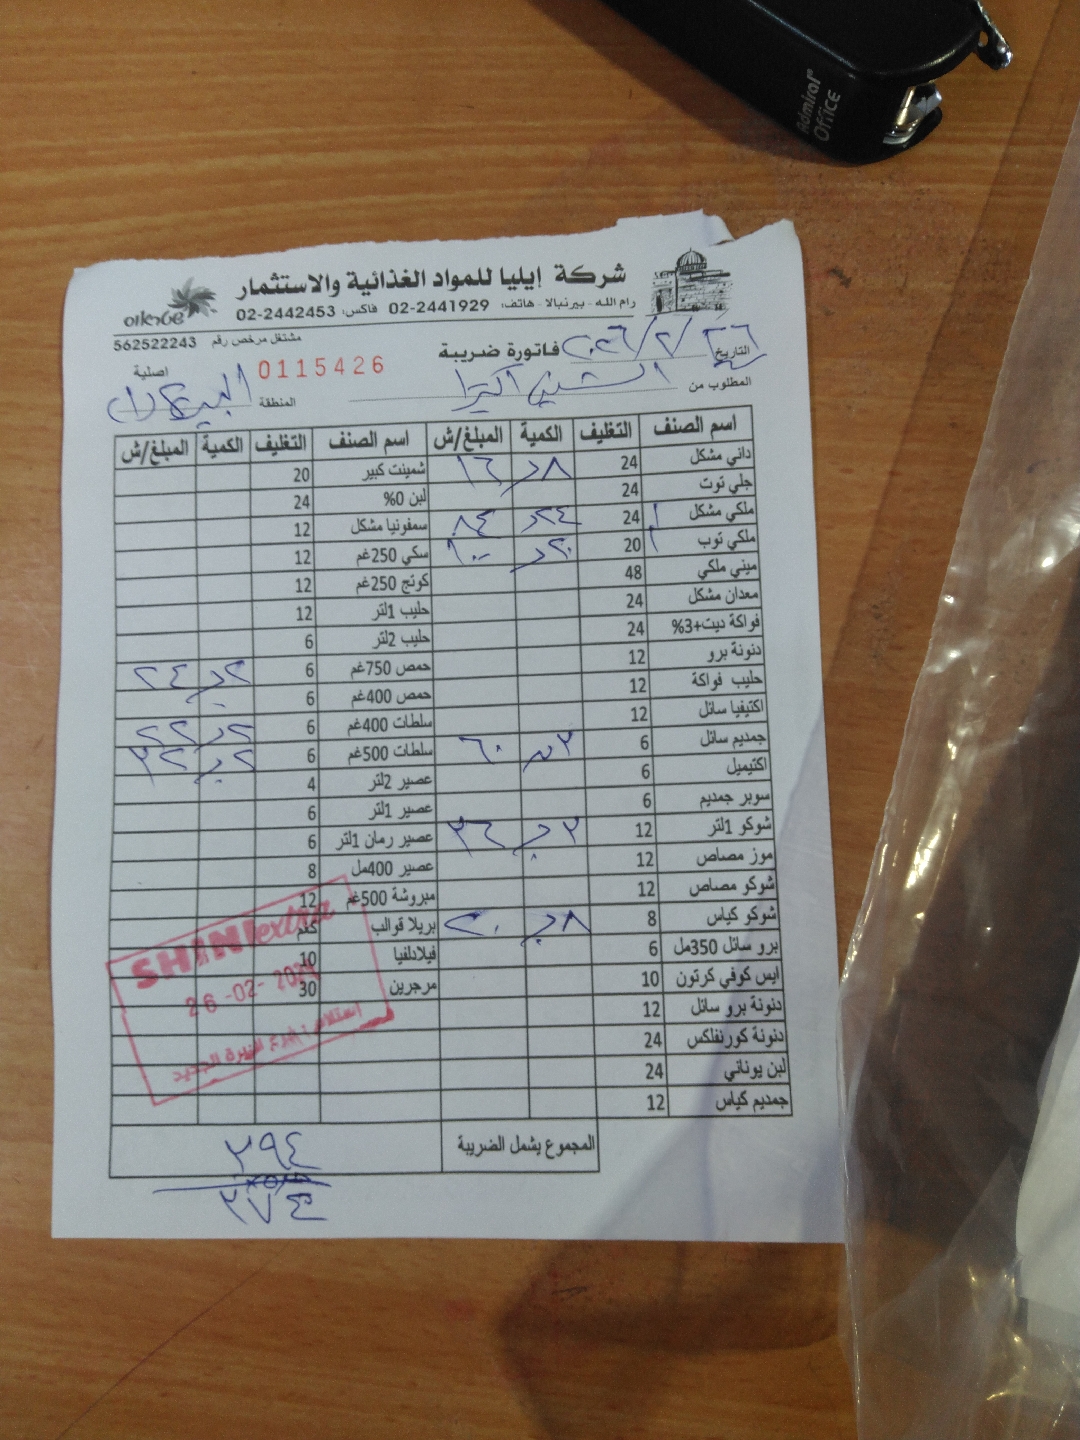 Admiral
Office
شركة إيليا للمواد الغذائية والاستثمار
رام الله - بيرنبالا - هاتف: 02-2441929 فاكس: 02-2442453
שטראוס
مشتغل مرخص رقم 562522243
التاريخ ٢٠٢٦/٢/٢٦ فاتورة ضريبة 0115426 اصلية
المطلوب من المنطقة
اسم الصنف التغليف الكمية المبلغ/ش اسم الصنف التغليف الكمية المبلغ/ش
داني مشكل 24 ٨ ١٦ شمينت كبير 20
جلي توت 24 لبن 0% 24
ملكي مشكل 24 ٢٤ ٨٤ سمفونيا مشكل 12
ملكي توب 20 ٢٠ ١٠٠ سكي 250غم 12
ميني ملكي 48 كوتج 250غم 12
معدان مشكل 24 حليب 1لتر 12
فواكة ديت+3% 24 حليب 2لتر 6
دنونة برو 12 حمص 750غم 6 ٢ ٢٤
حليب فواكة 12 حمص 400غم 6
اكتيفيا سائل 12 سلطات 400غم 6 ٢ ٢٢
جمديم سائل 6 ٣ ٦٠ سلطات 500غم 6 ٢ ٣٢
اكتيميل 6 عصير 2لتر 4
سوبر جمديم 6 عصير 1لتر 6
شوكو 1لتر 12 ٣ ٣٦ عصير رمان 1لتر 6
موز مصاص 12 عصير 400مل 8
شوكو مصاص 12 مبروشة 500غم 12
شوكو كياس 8 ٨ ٢٠ بريلا قوالب كغم
برو سائل 350مل 6 فيلادلفيا 10
ايس كوفي كرتون 10 مرجرين 30
دنونة برو سائل 12
دنونة كورنفلكس 24
لبن يوناني 24
جمديم كياس 12
SHINI extra
26-02-
استلام : فرع البيرة الجديد
المجموع يشمل الضريبة ٣٩٤
٣٧٤